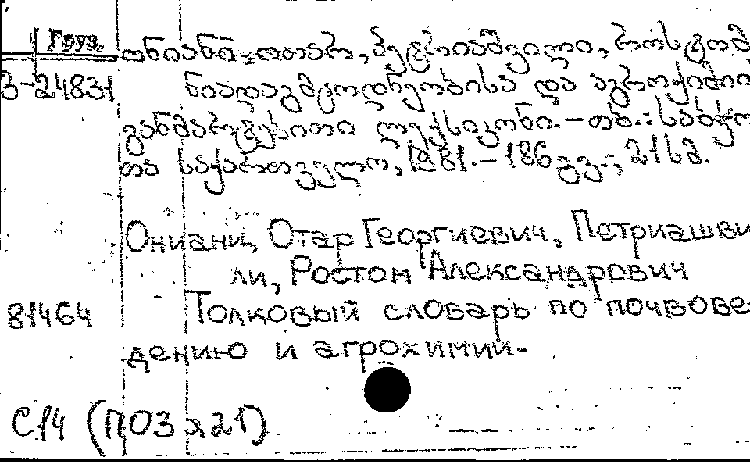 Груз.
ონიანი ოთარ, პეტრიაშვილი, როსტომ
3-24831 ნიადაგმცოდნეობისა და აგროქიმიი
განმარტებითი ლექსიკონი.-თბ.: საბჭო
თა საქართველო, 1981.-186 გვ.; 21სმ.
Ониани, Отар Георгиевич, Петриашви
ли, Ростом Александрович
81464 Толковый словарь по почвове-
дению и агрохимии.
С14 (П03я21)